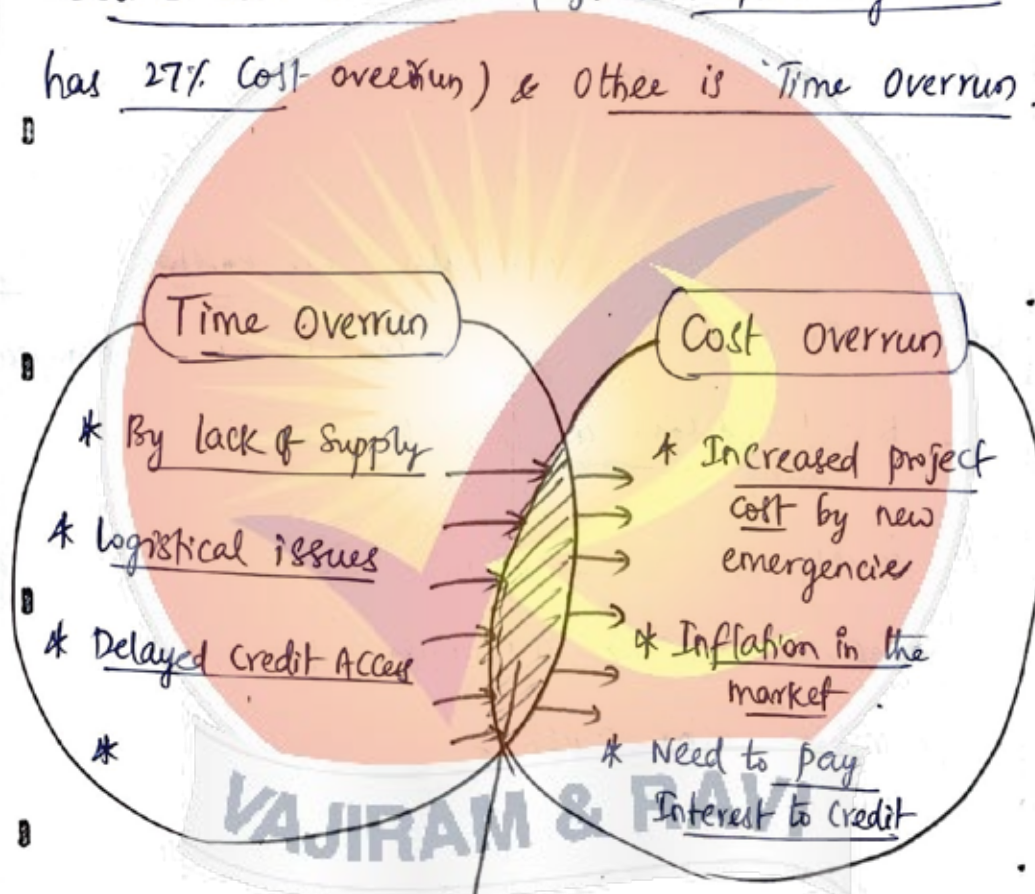 has 27% Cost overrun) & Other is Time Overrun.
Time Overrun
* By lack of Supply
* Logistical issues
* Delayed Credit Access
*
Cost Overrun
* Increased project
cost by new
emergencies
* Inflation in the
market
* Need to pay
Interest to Credit
VAJIRAM & RAVI